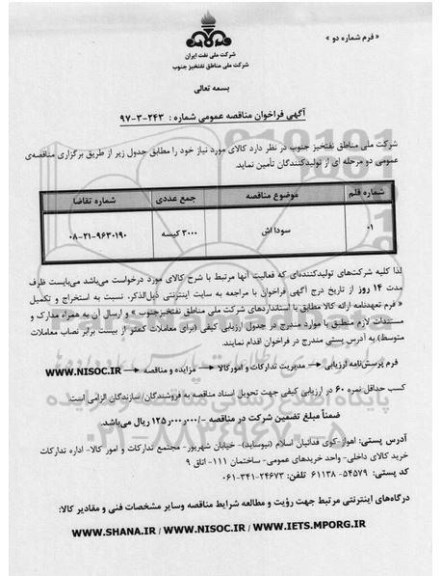 « فرم شماره دو »
شرکت ملی نفت ایران
شرکت ملی مناطق نفتخیز جنوب
بسمه تعالی
آگهی فراخوان مناقصه عمومی شماره : ۲۴۳-۳-۹۷
شرکت ملی مناطق نفتخیز جنوب در نظر دارد کالای مورد نیاز خود را مطابق جدول زیر از طریق برگزاری مناقصه‌ی
عمومی دو مرحله ای از تولیدکنندگان تأمین نماید.
شماره قلم موضوع مناقصه جمع عددی شماره تقاضا
۰۱ سودا اش ۲۰۰۰ کیسه ۰۸-۲۱-۹۶۳۰۱۹۰
لذا کلیه شرکت‌های تولیدکننده‌ای که فعالیت آنها مرتبط با شرح کالای مورد درخواست می‌باشد می‌بایست ظرف
مدت ۱۴ روز از تاریخ درج آگهی فراخوان با مراجعه به سایت اینترنتی ذیل‌الذکر، نسبت به استخراج و تکمیل
« فرم تعهدنامه ارائه کالا مطابق با استانداردهای شرکت ملی مناطق نفتخیزجنوب » و ارسال آن به همراه مدارک و
مستندات لازم منطبق با موارد مندرج در جدول ارزیابی کیفی (برای معاملات کمتر از بیست برابر نصاب معاملات
متوسط) به آدرس پستی مندرج در فراخوان اقدام نمایند.
فرم پرسش‌نامه ارزیابی ← مدیریت تدارکات و امورکالا ← مزایده و مناقصه ← WWW.NISOC.IR
کسب حداقل نمره ۶۰ در ارزیابی کیفی جهت تحویل اسناد مناقصه به فروشندگان /سازندگان الزامی است.
ضمناً مبلغ تضمین شرکت در مناقصه -/۱۲۵,۰۰۰,۰۰۰ ریال می‌باشد.
آدرس پستی: اهواز-کوی فدائیان اسلام (نیوساید)- خیابان شهریور- مجتمع تدارکات و امور کالا- اداره تدارکات
خرید کالای داخلی- واحد خریدهای عمومی- ساختمان ۱۱۱- اتاق ۹
کد پستی: ۵۴۵۷۹- ۶۱۱۳۸ تلفن: ۲۴۶۷۳-۳۴۱-۰۶۱
درگاه‌های اینترنتی مرتبط جهت رؤیت و مطالعه شرایط مناقصه وسایر مشخصات فنی و مقادیر کالا:
WWW.SHANA.IR / WWW.NISOC.IR / WWW.IETS.MPORG.IR